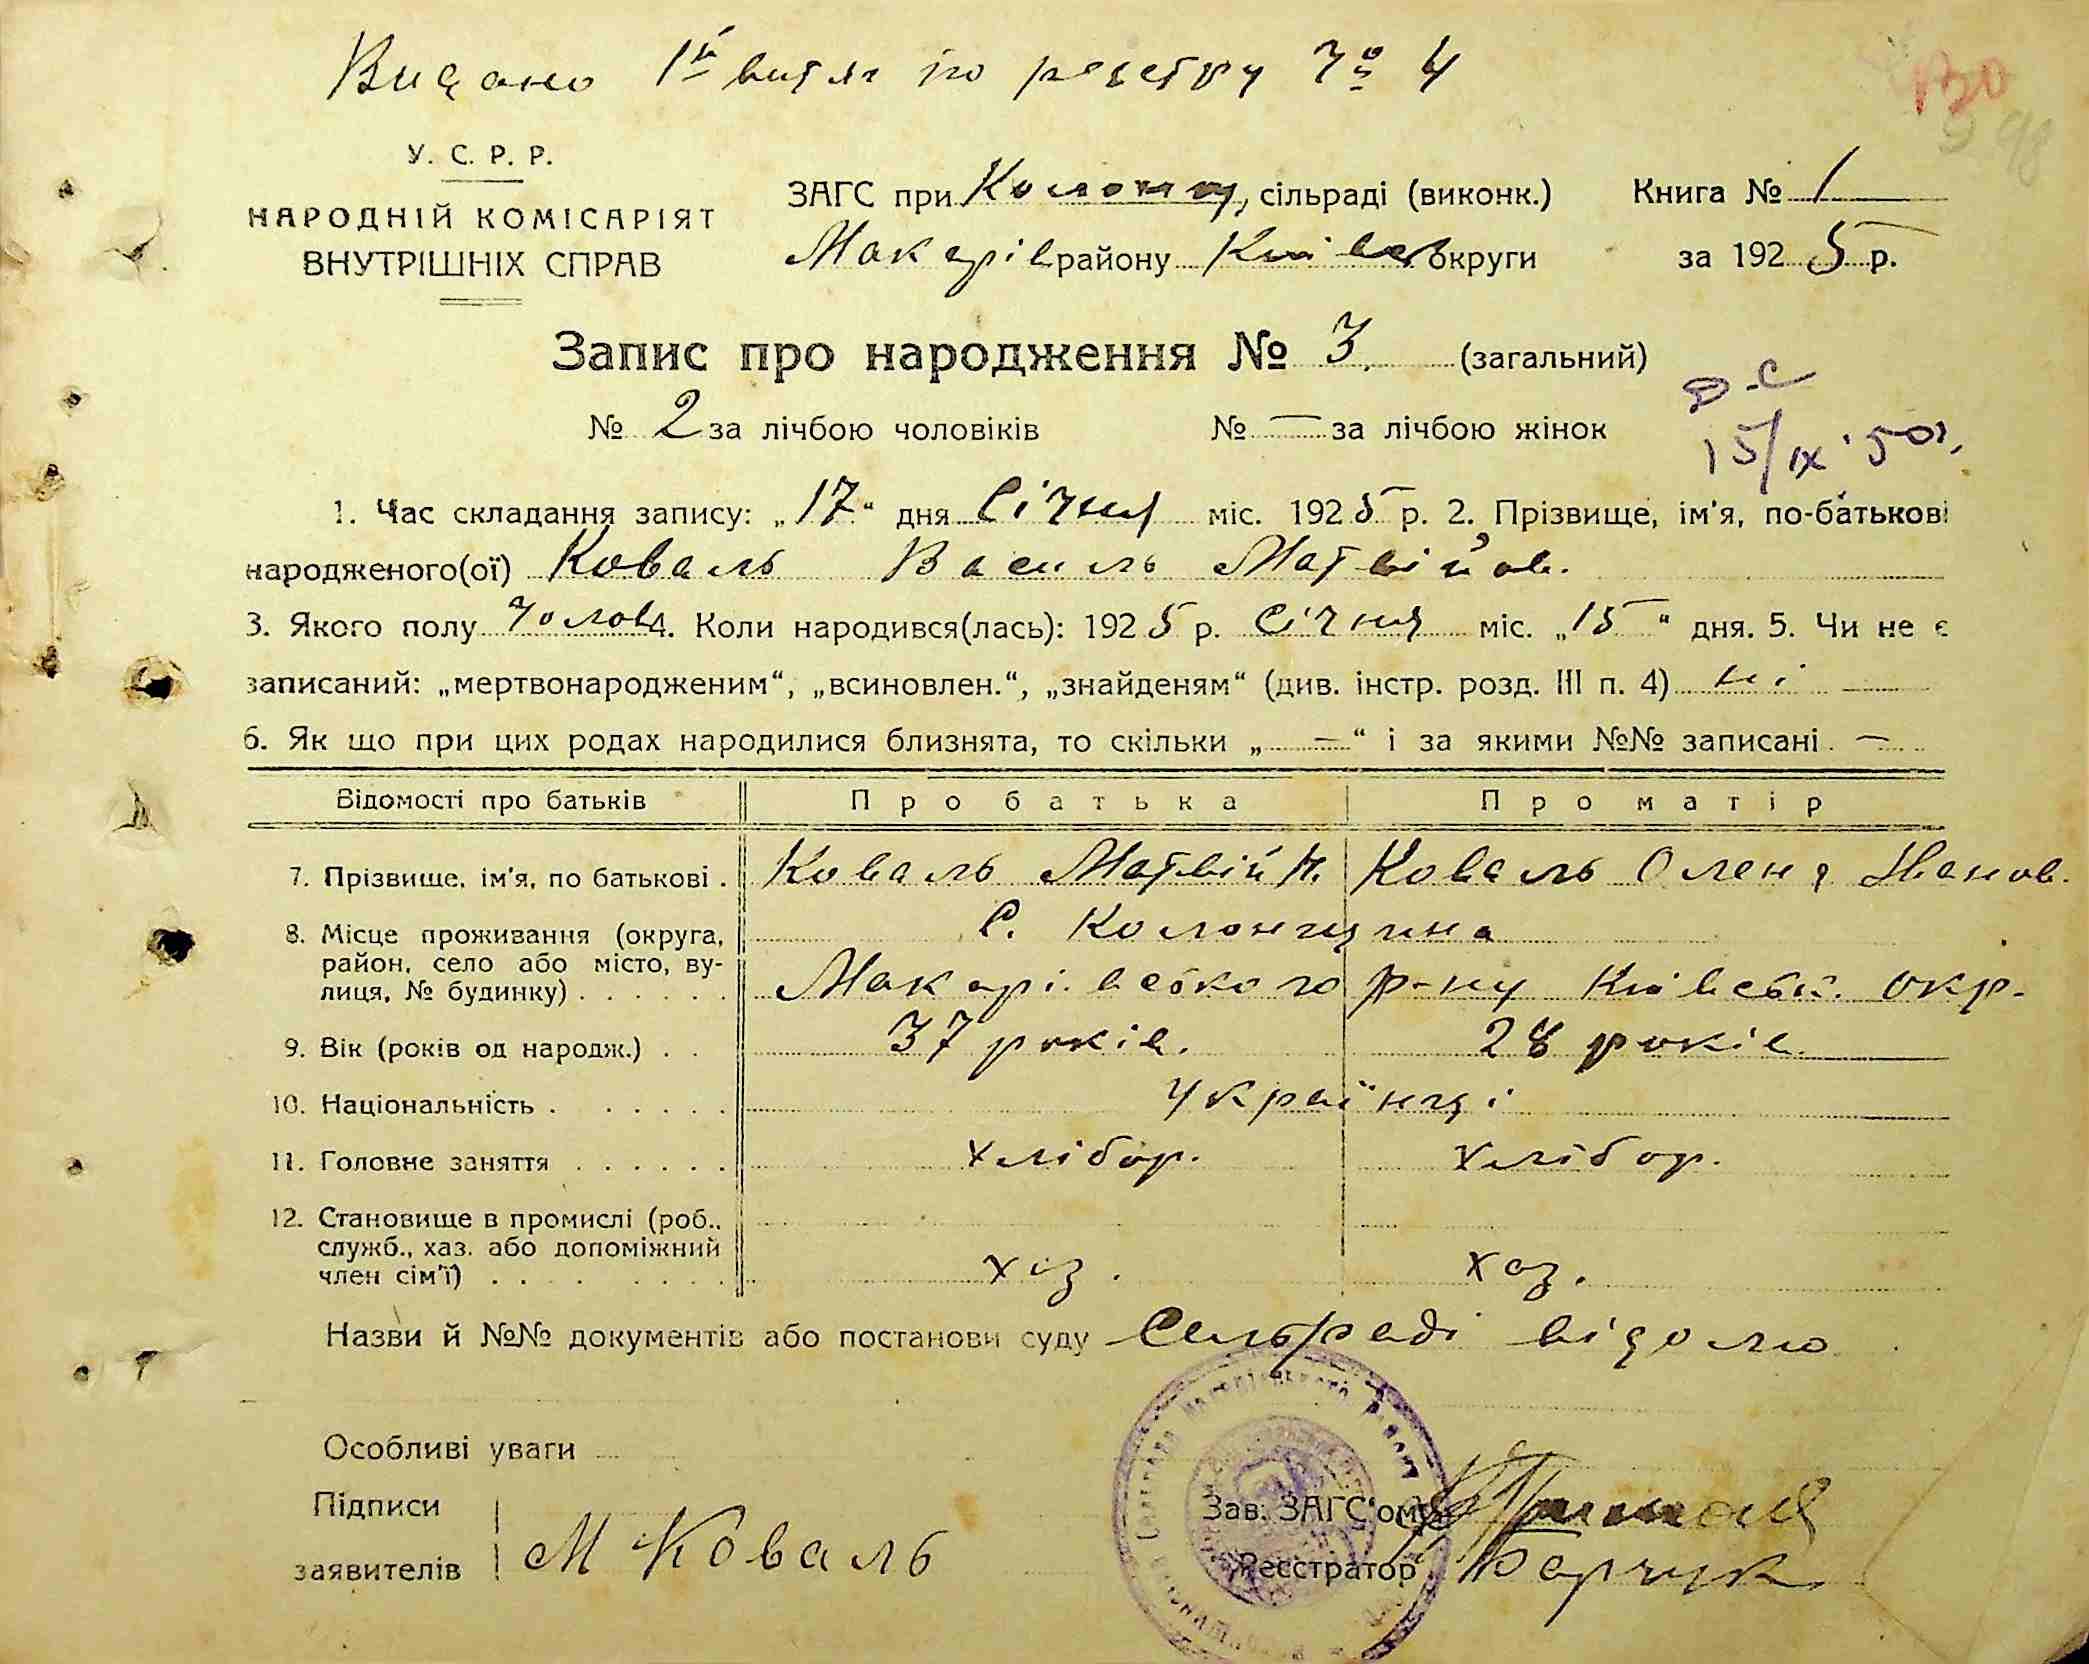 Видано 1й витяг по реєстру № 4
130
998
У. С. Р. Р.
НАРОДНІЙ КОМІСАРІЯТ
ВНУТРІШНІХ СПРАВ
ЗАГС при Колонщ. сільраді (виконк.)
Макарів району Київс округи
Книга № 1
за 1925 р.
Запис про народження № 3 (загальний)
№ 2 за лічбою чоловіків № — за лічбою жінок
15/IX 50г.
1. Час складання запису: „17“ дня Січня міс. 1925 р. 2. Прізвище, ім'я, по-батькові
народженого(ої) Коваль Василь Матвійов.
3. Якого полу чолов 4. Коли народився(лась): 1925 р. Січня міс. „15“ дня. 5. Чи не є
записаний: „мертвонародженим“, „всиновлен.“, „знайденям“ (див. інстр. розд. III п. 4) ні
6. Як що при цих родах народилися близнята, то скільки „—“ і за якими №№ записані —
Відомості про батьків Про батька Про матір
7. Прізвище, ім'я, по батькові . Коваль Матвій Н. Коваль Олена Иванов.
8. Місце проживання (округа, С. Колонщина
район, село або місто, ву-
лиця, № будинку) . . . . . . Макарівського р-ну Київськ. окр.
9. Вік (років од народж.) . . 37 років. 28 років
10. Національність . . . . . . українці
11. Головне заняття . . . . . . хлібор. хлібор.
12. Становище в промислі (роб.,
служб., хаз. або допоміжний
член сім'ї) . . . . . . . . хаз. хаз.
Назви й №№ документів або постанови суду Сельраді відомо
Особливі уваги
Підписи
заявителів М Коваль
Зав. ЗАГС'ом
Реєстратор Барчук